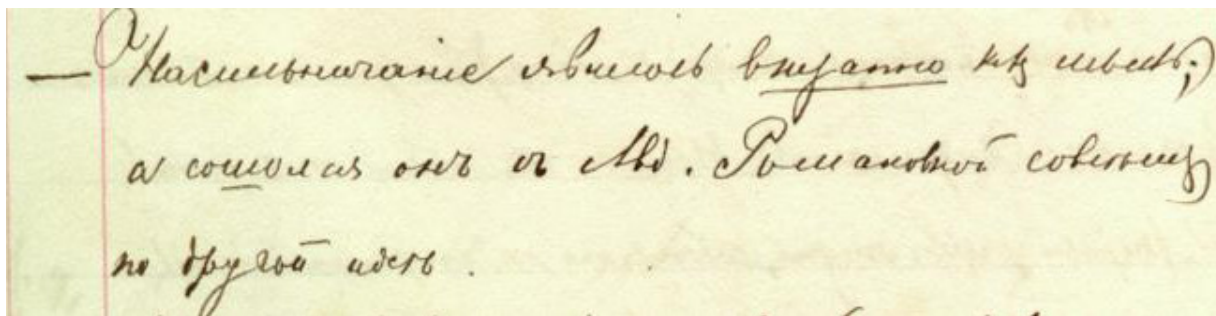 — Насильничаніе явилось внезапно ккъ мысль;
а сошолся онъ съ Авд. Романовной совсѣмъ
по другой идеѣ.